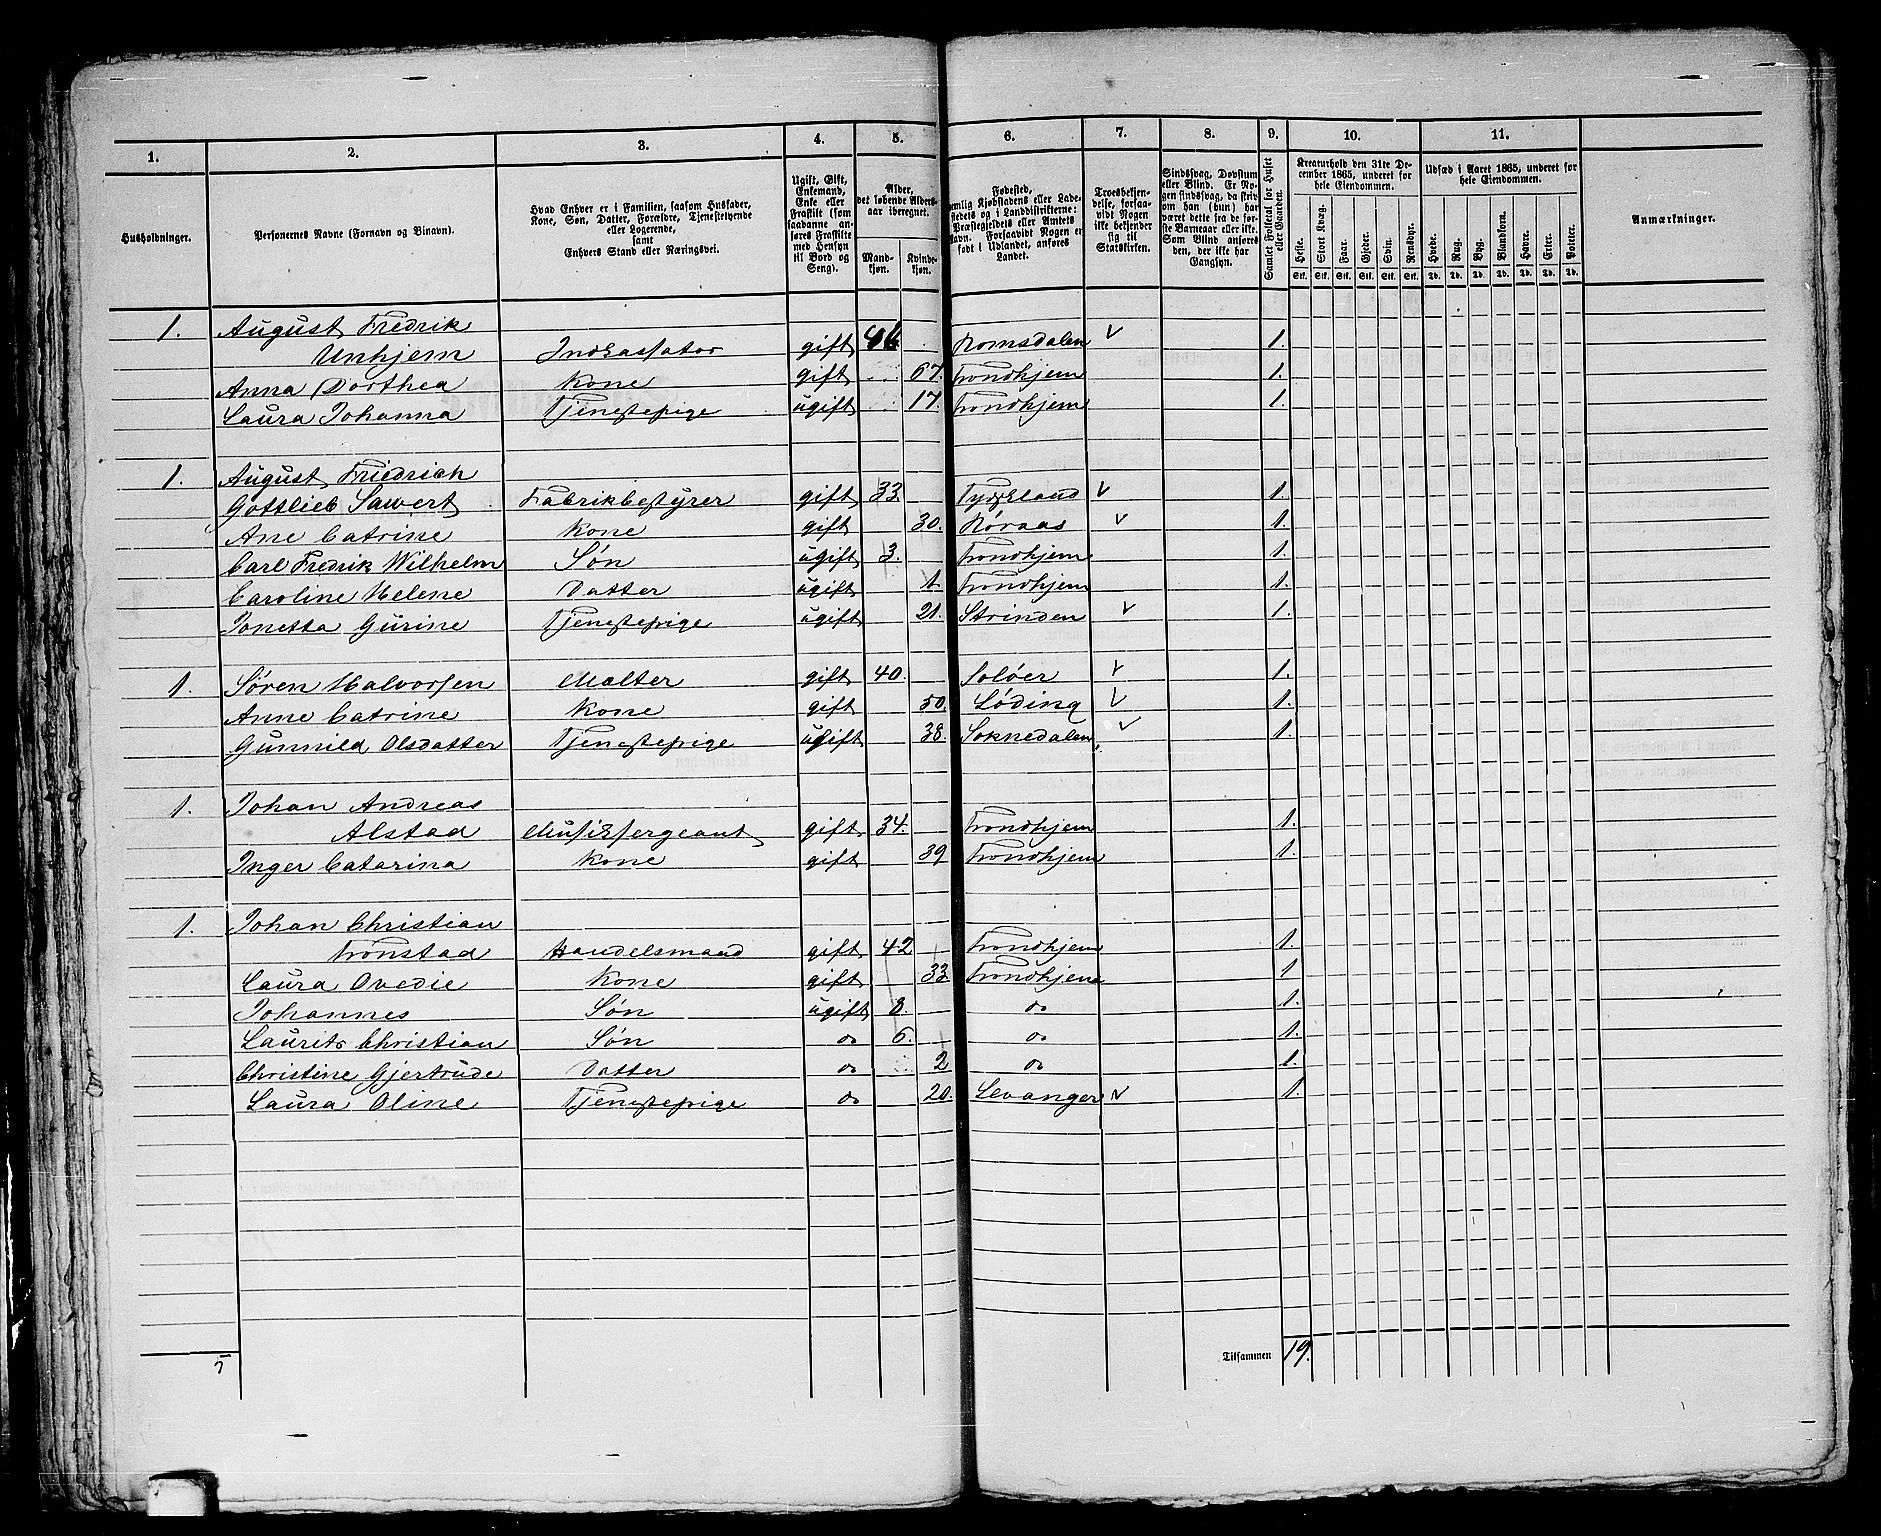 1. 2. 3. 4. 5. 6. 7. 8. 9. 10. 11.
Husholdninger.
Personernes Navne (Fornavn og Binavn).
Hvad Enhver er i Familien, saasom Husfader,
Kone, Søn, Datter, Forældre, Tjenestetyende
eller Logerende,
samt
Enhvers Stand eller Næringsvei.
Ugift, Gift,
Enkemand,
Enke eller
Fraskilt (som
saadanne an-
føres Fraskilte
med Hensyn
til Bord og
Seng).
Alder,
det løbende Alders-
aar iberegnet.
Mand-
kjøn.
Kvinde-
kjøn.
Fødested,
nemlig Kjøbstadens eller Lade-
stedets og i Landdistrikterne:
Præstegjeldets eller Amtets
Navn. Forsaavidt Nogen er
født i Udlandet, anføres
Landet.
Troesbekjen-
delse, forsaa-
vidt Nogen
ikke bekjender
sig til
Statskirken.
Sindssvag, Døvstum
eller Blind. Er No-
gen sindssvag, da skriv
om han (hun) har
været dette fra de før-
ste Barneaar eller ikke.
Som Blind anføres
den, der ikke har
Gangsyn.
Samlet Folketal for Huset
eller Gaarden.
Kreaturhold den 31te De-
cember 1865, underet for
hele Eiendommen.
Heste. Stort Kvæg. Faar. Gjeder. Svin. Rensdyr.
Stk. Stk. Stk. Stk. Stk. Stk.
Udsæd i Aaret 1865, underet for
hele Eiendommen.
Hvede. Rug. Byg. Blandkorn. Havre. Erter. Poteter.
Td. Td. Td. Td. Td. Td. Td.
Anmærkninger.
1. August Fredrik
Unhjem Indkassator gift Romsdalen v 1.
Anna Dorthea Kone gift 67. Trondhjem 1.
Laura Johanna Tjenestepige ugift 17. Trondhjem 1.
1. August Friedrich
Gottlieb Sawert Fabrikbestyrer gift 33 Tydskland v 1.
Ane Catrine Kone gift 30. Røraas v 1.
Carl Fredrik Wilhelm Søn ugift 3. Trondhjem 1.
Caroline Helene Datter ugift 1. Trondhjem 1.
Jonetta Gurine Tjenestepige ugift 21. Strinden v 1.
1. Søren Halvorsen Malter gift 40. Soløer v 1.
Anne Catrine Kone gift 50. Løding v 1.
Gunnild Olsdatter Tjenestepige ugift 38. Soknedalen v 1.
1. Johan Andreas
Alstad Musiksergeant gift 34. Trondhjem 1.
Inger Catarina Kone gift 39 Trondhjem 1.
1. Johan Christian
Trønstad Handelsmand gift 42 Trondhjem 1.
Laura Ovedie Kone gift 33 Trondhjem 1
Johannes Søn ugift 8. do 1.
Laurits Christian Søn do 6. do 1.
Christine Gjertrude Datter do 2 do 1.
Laura Oline Tjenestepige do 20. Levanger v 1.
5 Tilsammen 19.